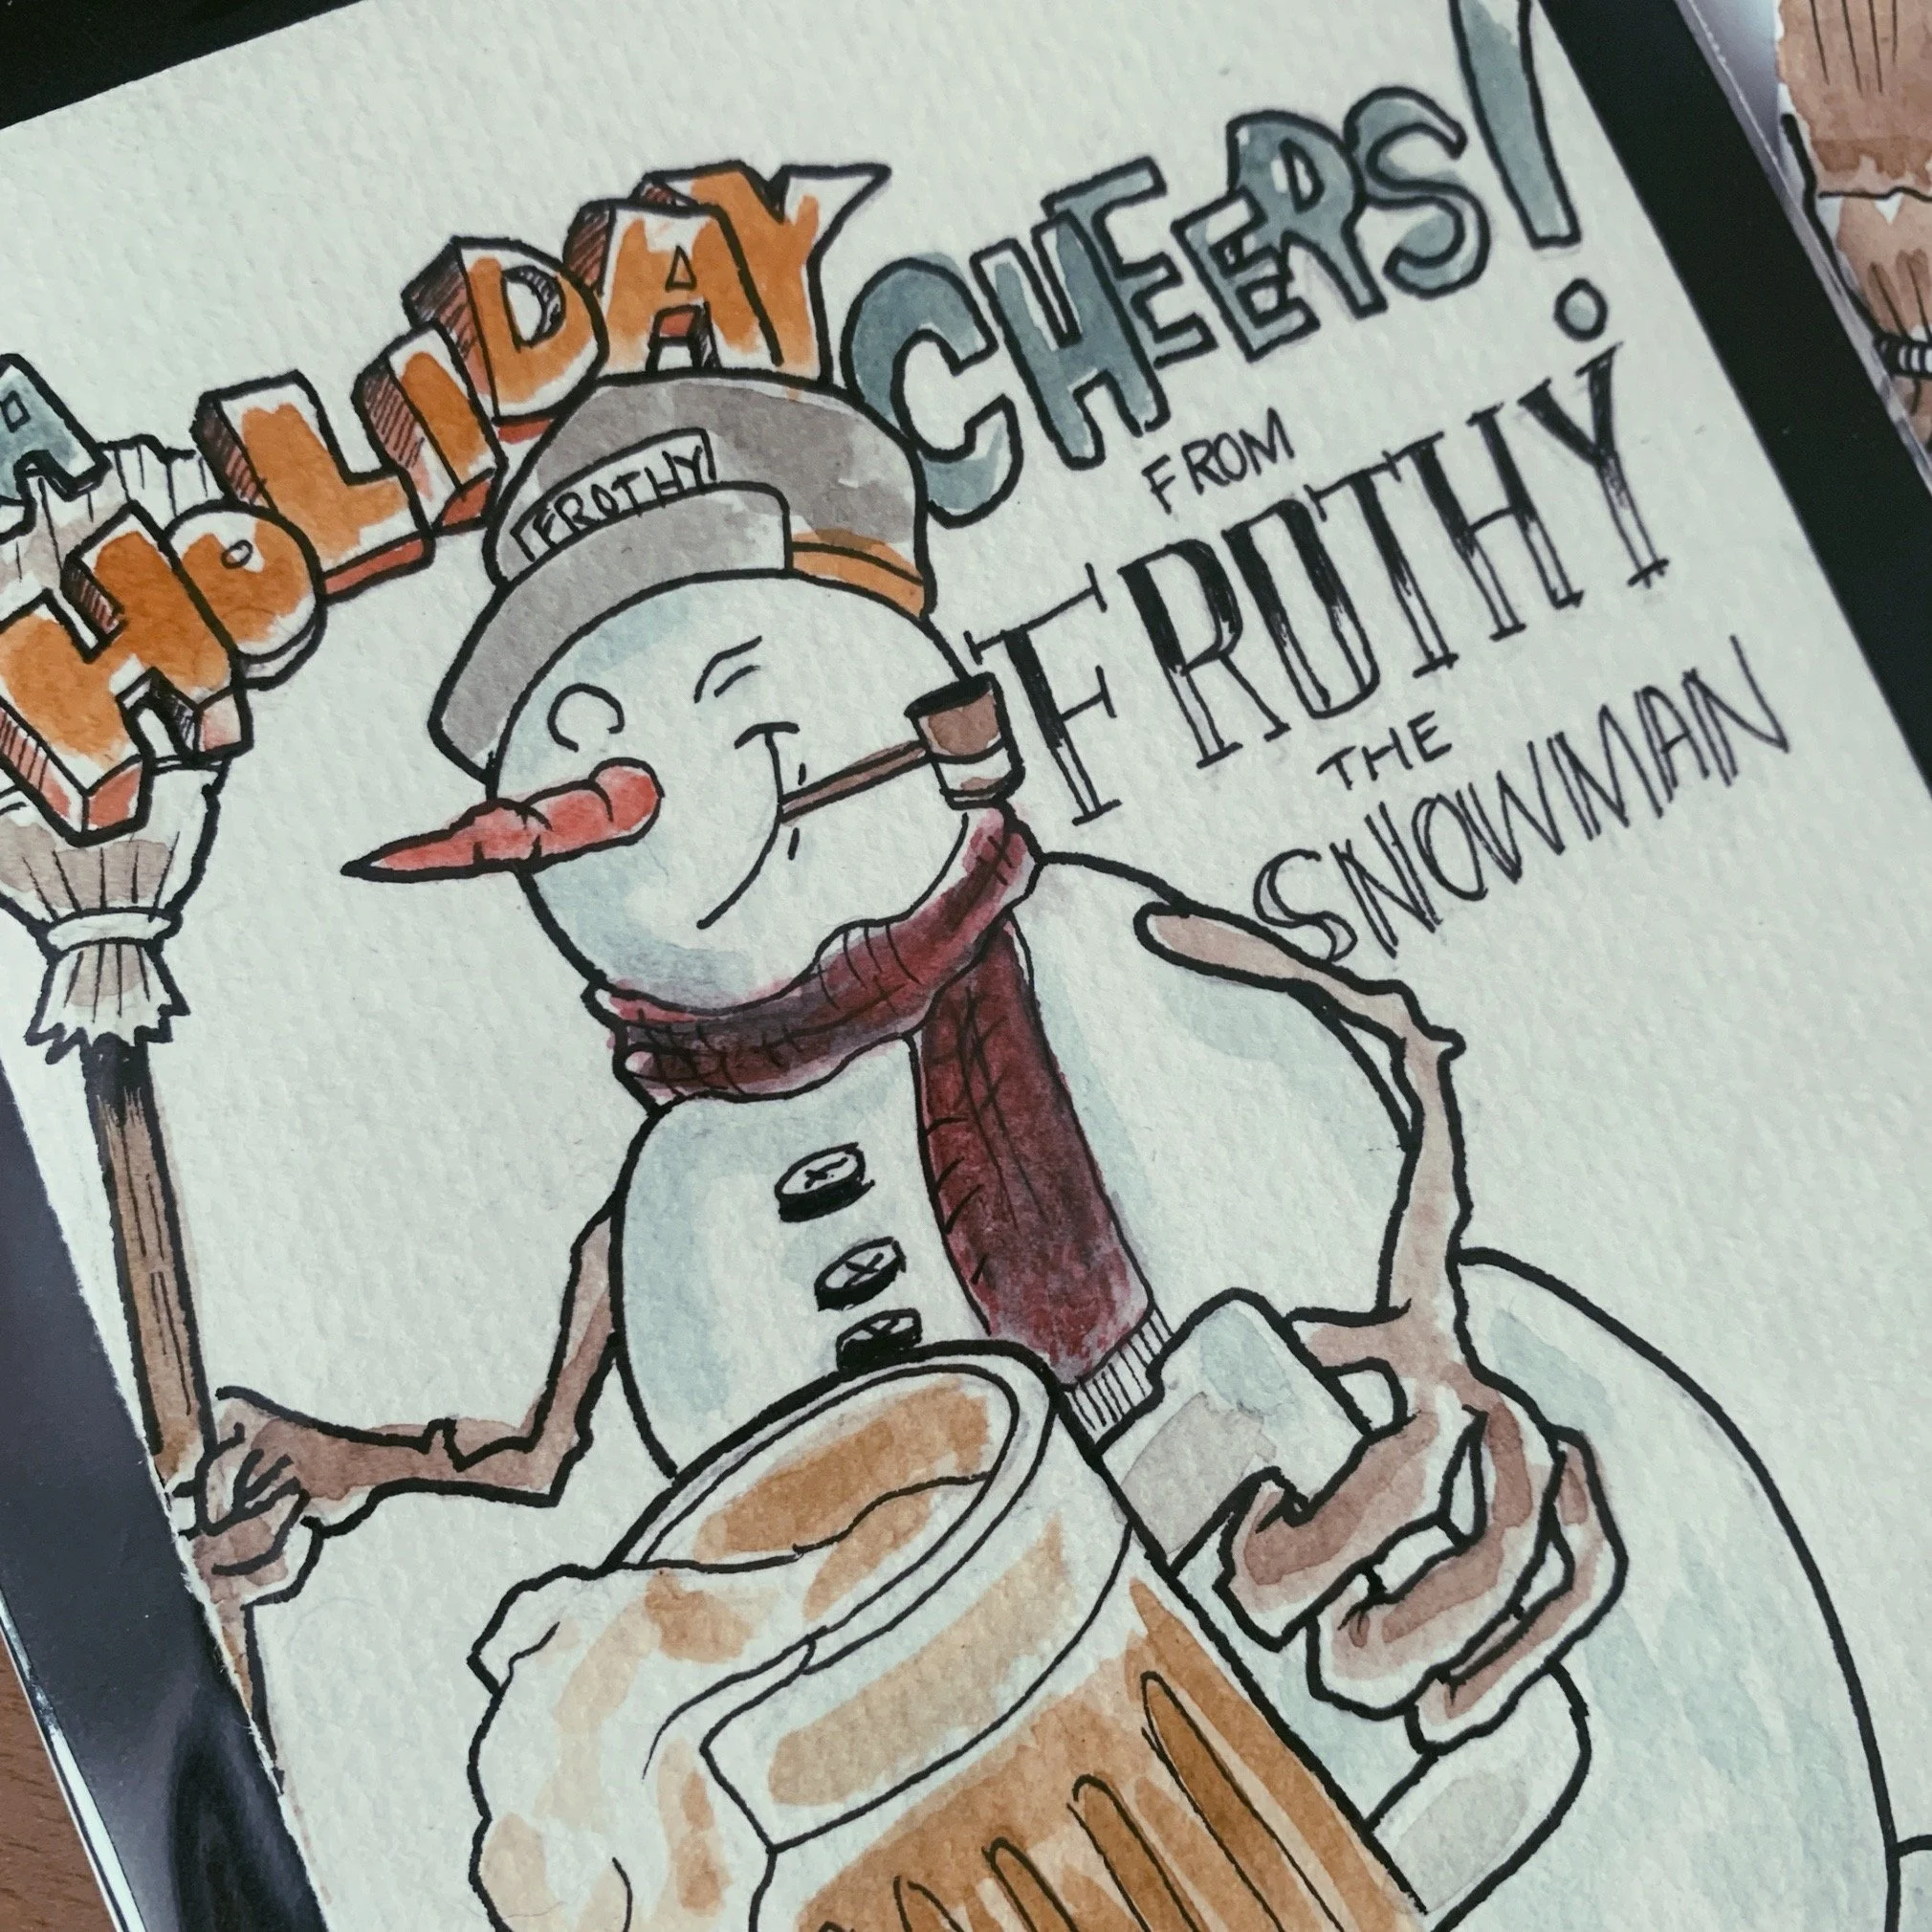 A
HOLIDAY
CHEERS!
FROM
FROTHY
THE
SNOWMAN
FROTHY